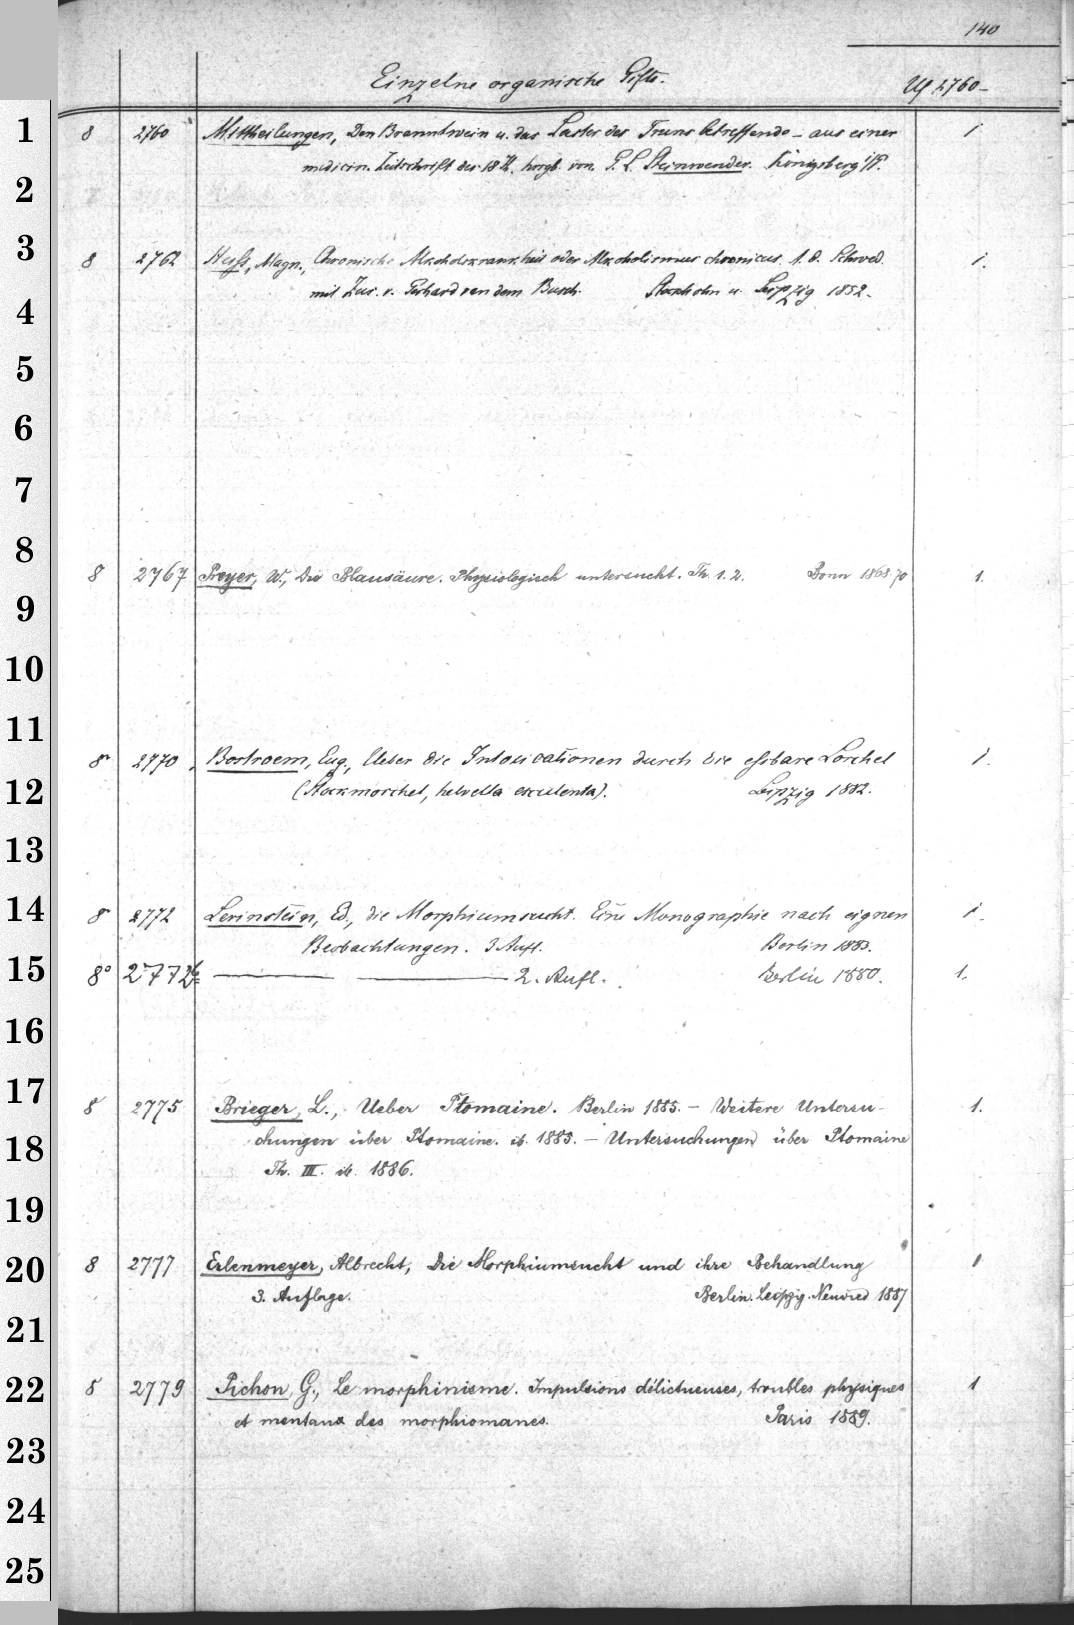 140
Einzelne organische Gifte.
Uf 2760-
1 8 2760 Mittheilungen, Den Branntwein u. das Laster des Trunks betreffende - aus einer 1
medicin. Zeitschrift des 18 Jh. hersgb. von G. L. Steinwender. Königsberg i/P.
2
3 8 2762 Huss, Magn., Chronische Alkoholskrankheit oder Alkoholismus chronicus. A. d. Schwed. 1.
4 mit Zus. v. Gerhard van dem Busch. Stockholm u. Leipzig 1852.
5
6
7
8 8 2767 Preyer, W., Die Blausäure. Physiologisch untersucht. Th. 1. 2. Bonn 1868.70 1.
9
10
11 8° 2770 Bostroem, Eug., Ueber die Intoxicationen durch die essbare Lorchel 1.
12 (Stockmorchel, helvella esculenta). Leipzig 1882.
13
14 8° 2772 Levinstein, Ed., die Morphiumsucht. Eine Monographie nach eignen 1.
Beobachtungen. 3 Aufl. Berlin 1883.
15 8° 2772b — — 2. Aufl. Berlin 1880. 1.
16
17 8 2775 Brieger, L., Ueber Ptomaine. Berlin 1885. - Weitere Untersu- 1.
18 chungen über Ptomaine. ib. 1885. - Untersuchungen über Ptomaine
Th. III. ib. 1886.
19
20 8 2777 Erlenmeyer, Albrecht, Die Morphiumsucht und ihre Behandlung 1
3. Auflage. Berlin. Leipzig. Neuwied 1887
21
22 8 2779 Pichon, G., Le morphinisme. Impulsions délictueuses, troubles physiques 1
et mentaux des morphiomanes. Paris 1889.
23
24
25